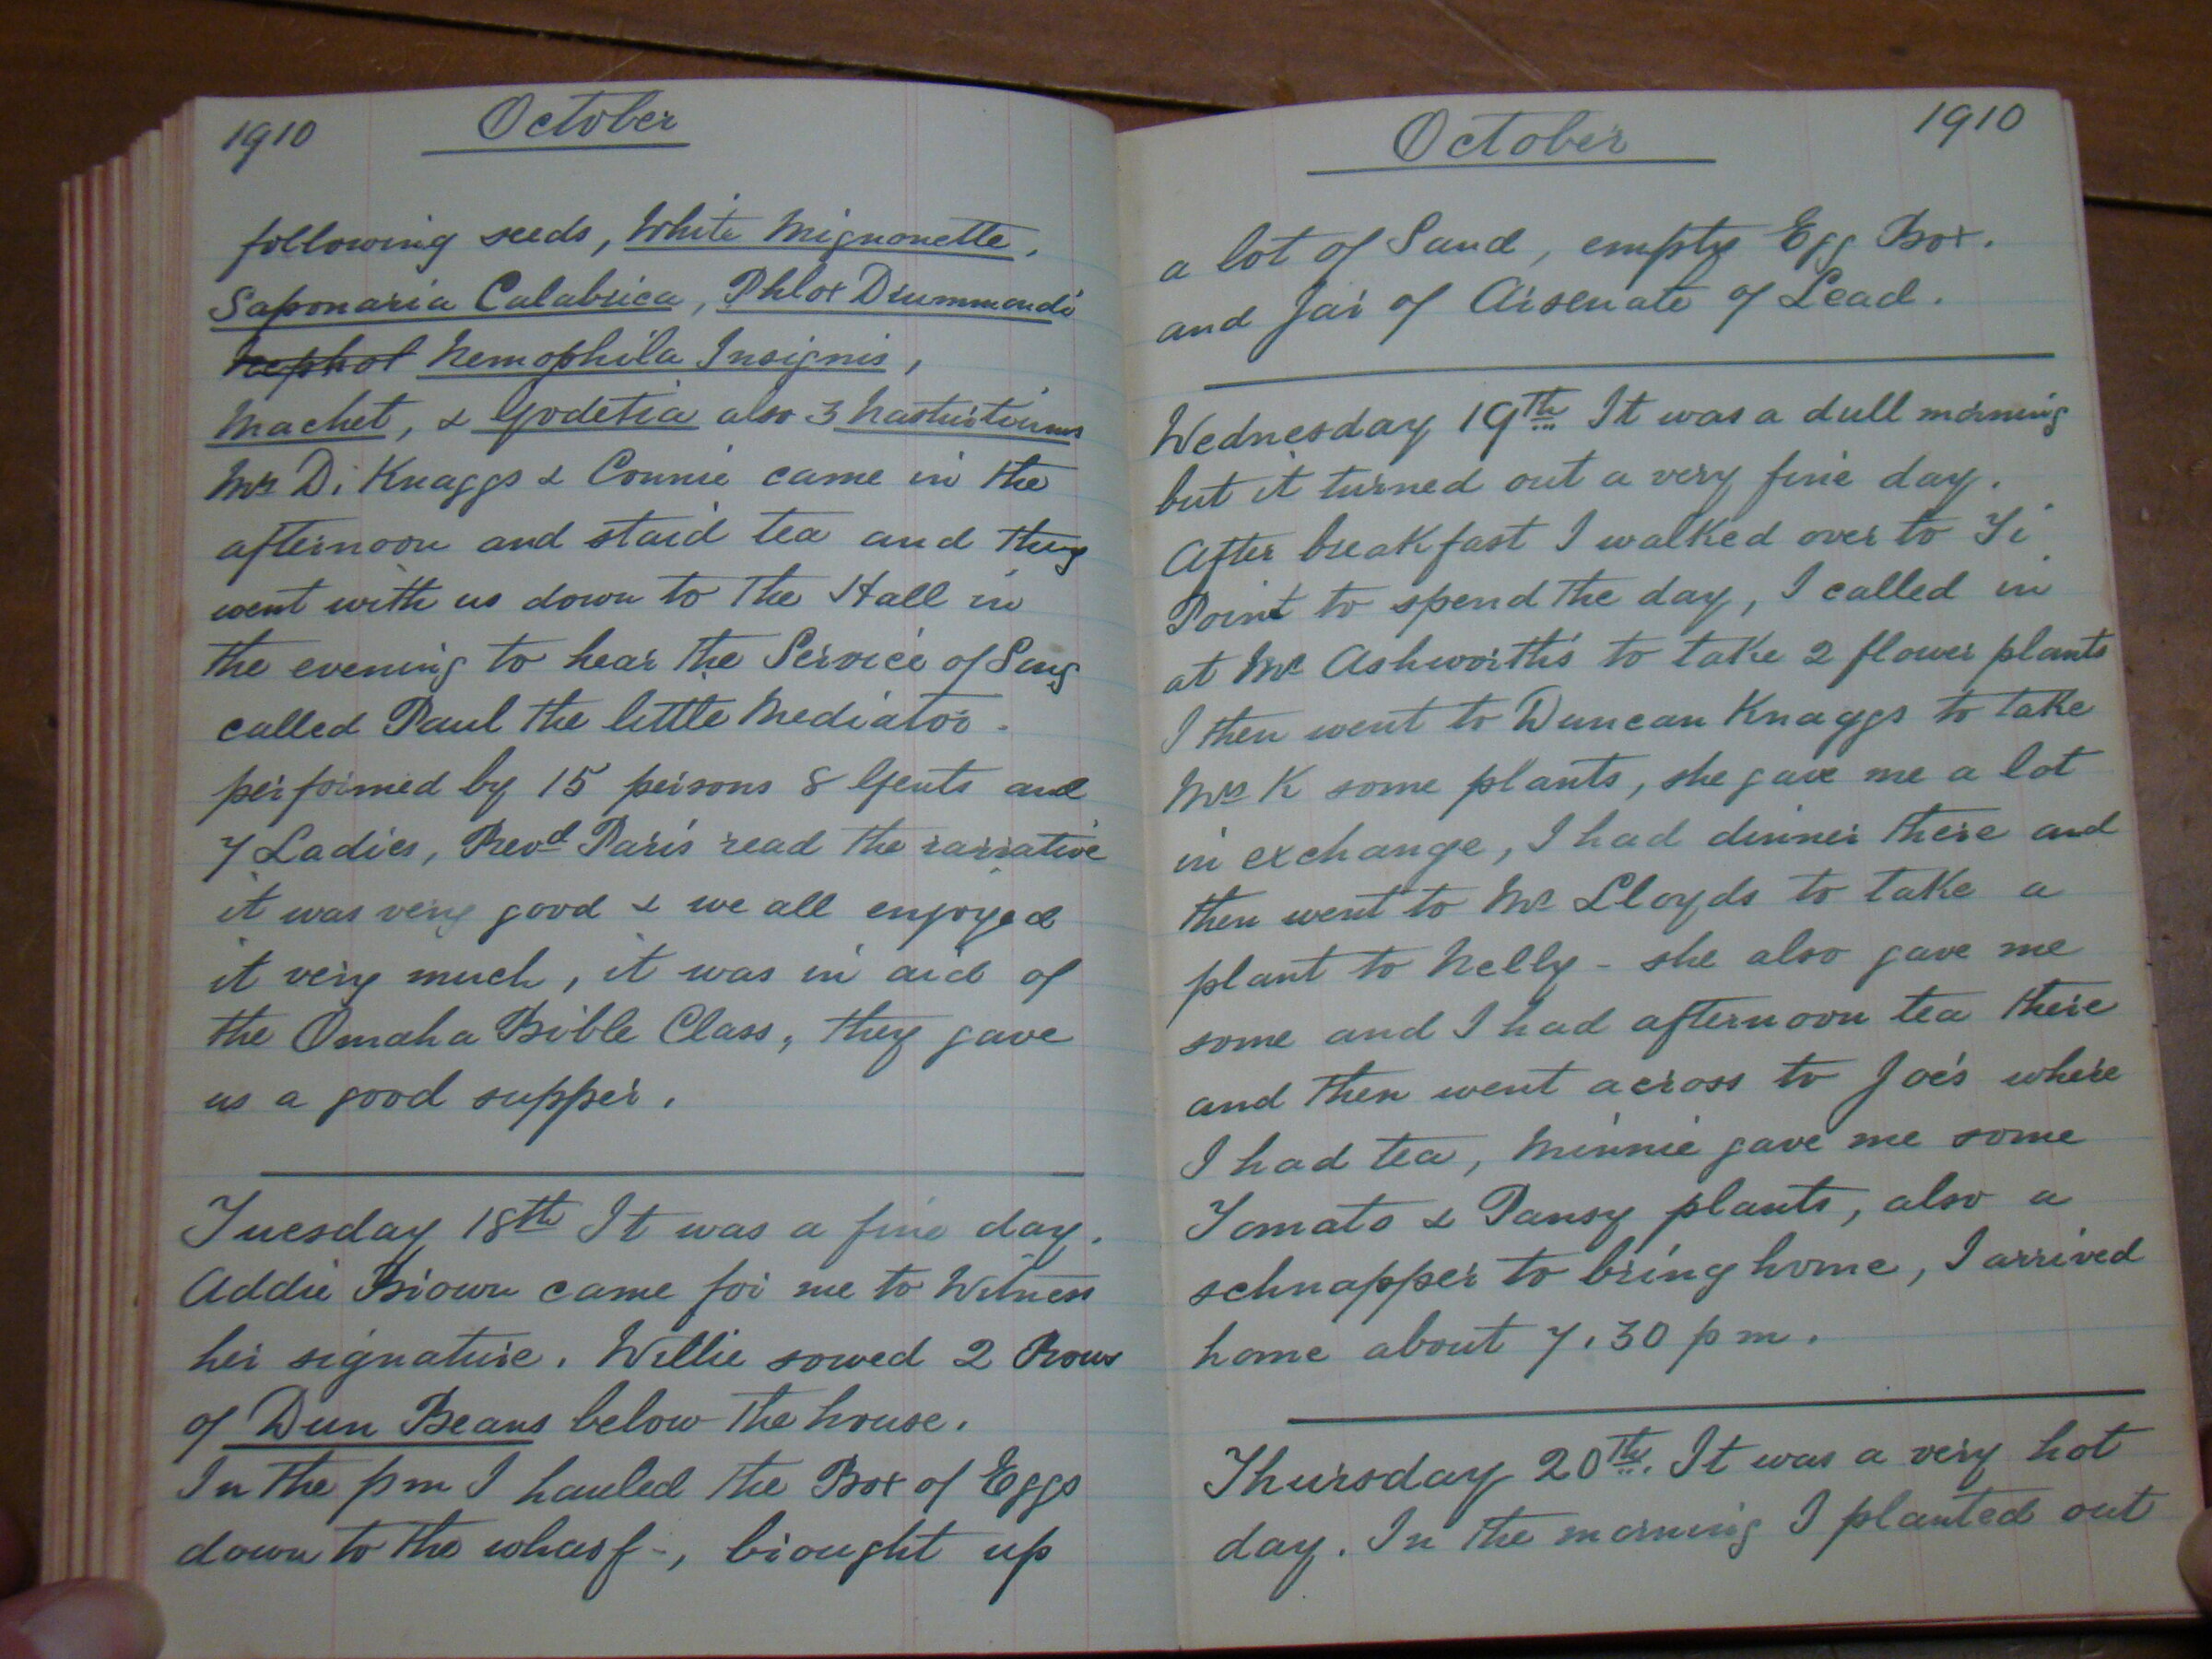 1910 October
following seeds, White Mignonette.
Saponaria Calabrica, Phlox Drummondi
Nephol Nemophila Insignis,
Machet, & Godetia also 3 Nasturtiums
Mr D. Knaggs & Connie came in the
afternoon and staid tea and they
went with us down to the Hall in
the evening to hear the Service of Song
called Paul the little Mediator.
performed by 15 persons 8 Gents and
7 Ladies, Revd Paris read the narrative
it was very good & we all enjoyed
it very much, it was in aid of
the Omaha Bible Class, they gave
us a good supper.
Tuesday 18th It was a fine day.
Addie Brown came for me to Witness
her signature. Willie sowed 2 Rows
of Dun Beans below the house.
In the pm I hauled the Box of Eggs
down to the wharf -, brought up
October 1910
a lot of Sand, empty Egg Box.
and Jar of Arsenate of Lead.
Wednesday 19Th It was a dull morning
but it turned out a very fine day.
After breakfast I walked over to Ti
Point to spend the day, I called in
at Mr Ashworth's to take 2 flower plants
I then went to Duncan Knaggs to take
Mrs K some plants, she gave me a lot
in exchange, I had dinner there and
then went to Mr Lloyds to take a
plant to Nelly - she also gave me
some and I had afternoon tea there
and then went across to Joe's where
I had tea, Minnie gave me some
Tomato & Pansy plants, also a
schnapper to bring home, I arrived
home about 7.30 pm.
Thursday 20Th. It was a very hot
day. In the morning I planted out